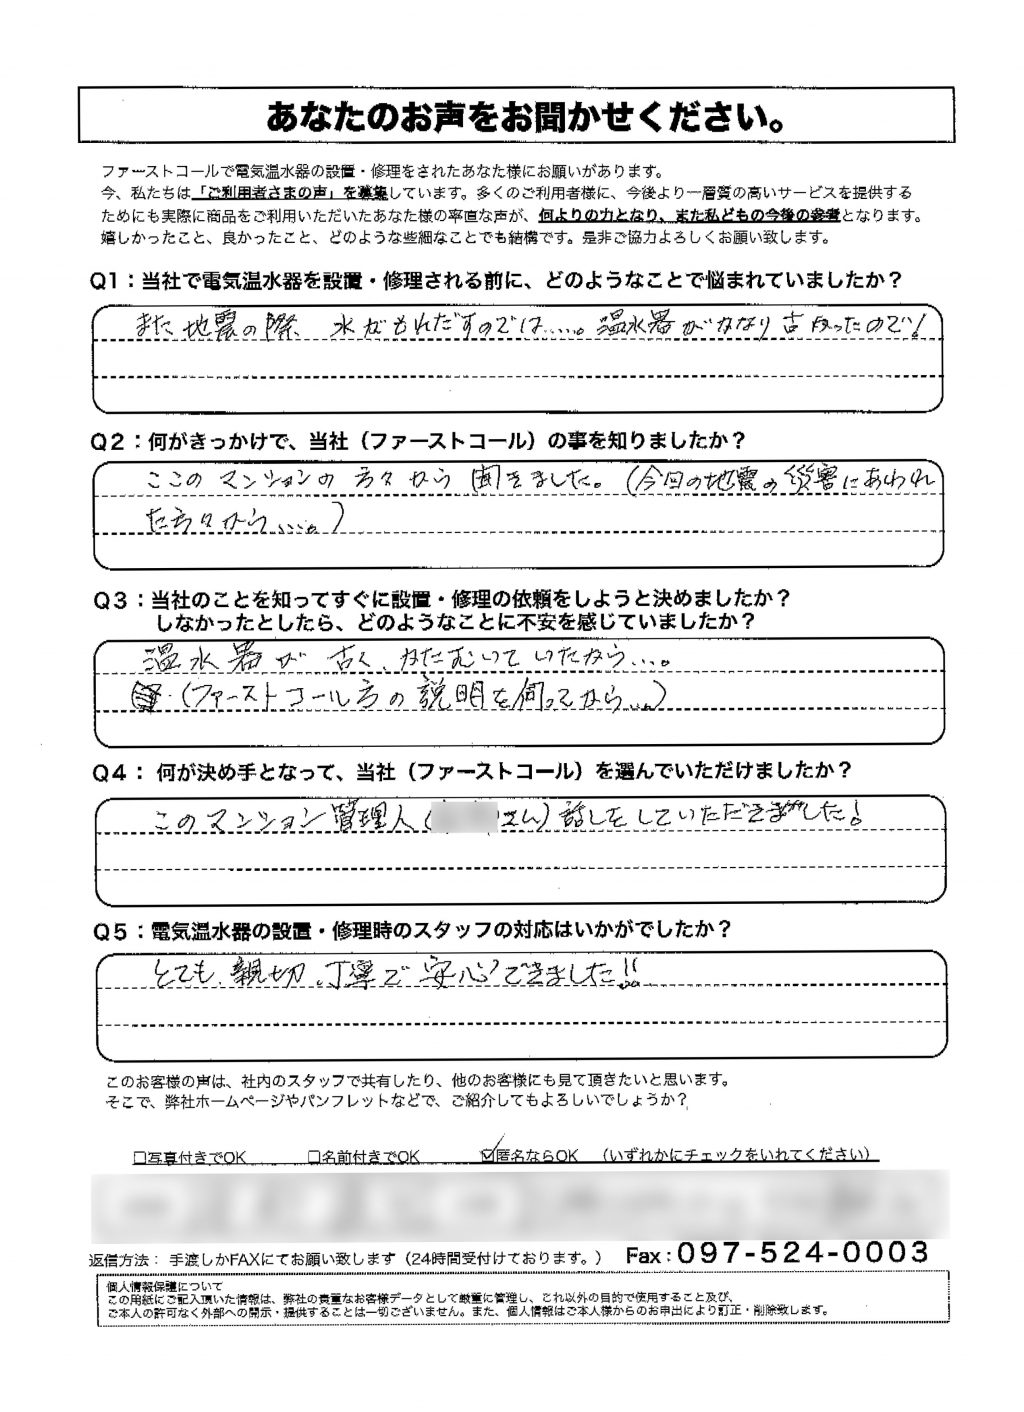 あなたのお声をお聞かせください。
ファーストコールで電気温水器の設置・修理をされたあなた様にお願いがあります。
今、私たちは「ご利用者さまの声」を募集しています。多くのご利用者様に、今後より一層質の高いサービスを提供する
ためにも実際に商品をご利用いただいたあなた様の率直な声が、何よりの力となり、また私どもの今後の参考となります。
嬉しかったこと、良かったこと、どのような些細なことでも結構です。是非ご協力よろしくお願い致します。
Q1：当社で電気温水器を設置・修理される前に、どのようなことで悩まれていましたか？
また地震の際 水がもれだすのでは.....。温水器がかなり古かったので！
Q2：何がきっかけで、当社（ファーストコール）の事を知りましたか？
ここのマンションの方々から聞きました。(今回の地震の災害にあわれ
た方々から....。)
Q3：当社のことを知ってすぐに設置・修理の依頼をしようと決めましたか？
しなかったとしたら、どのようなことに不安を感じていましたか？
温水器が古く、かたむいていたから...。
(ファーストコール方の説明を伺ってから...。)
Q4： 何が決め手となって、当社（ファーストコール）を選んでいただけましたか？
このマンション管理人(さん)話しをしていただきました！
Q5：電気温水器の設置・修理時のスタッフの対応はいかがでしたか？
とても、親切、丁寧で安心できました!!
このお客様の声は、社内のスタッフで共有したり、他のお客様にも見て頂きたいと思います。
そこで、弊社ホームページやパンフレットなどで、ご紹介してもよろしいでしょうか？
□写真付きでOK □名前付きでOK ☑匿名ならOK （いずれかにチェックをいれてください）
返信方法： 手渡しかFAXにてお願い致します（24時間受付けております。） Fax：097-524-0003
個人情報保護について
この用紙にご記入頂いた情報は、弊社の貴重なお客様データとして厳重に管理し、これ以外の目的で使用すること及び、
ご本人の許可なく外部への開示・提供することは一切ございません。また、個人情報はご本人様からのお申出により訂正・削除致します。